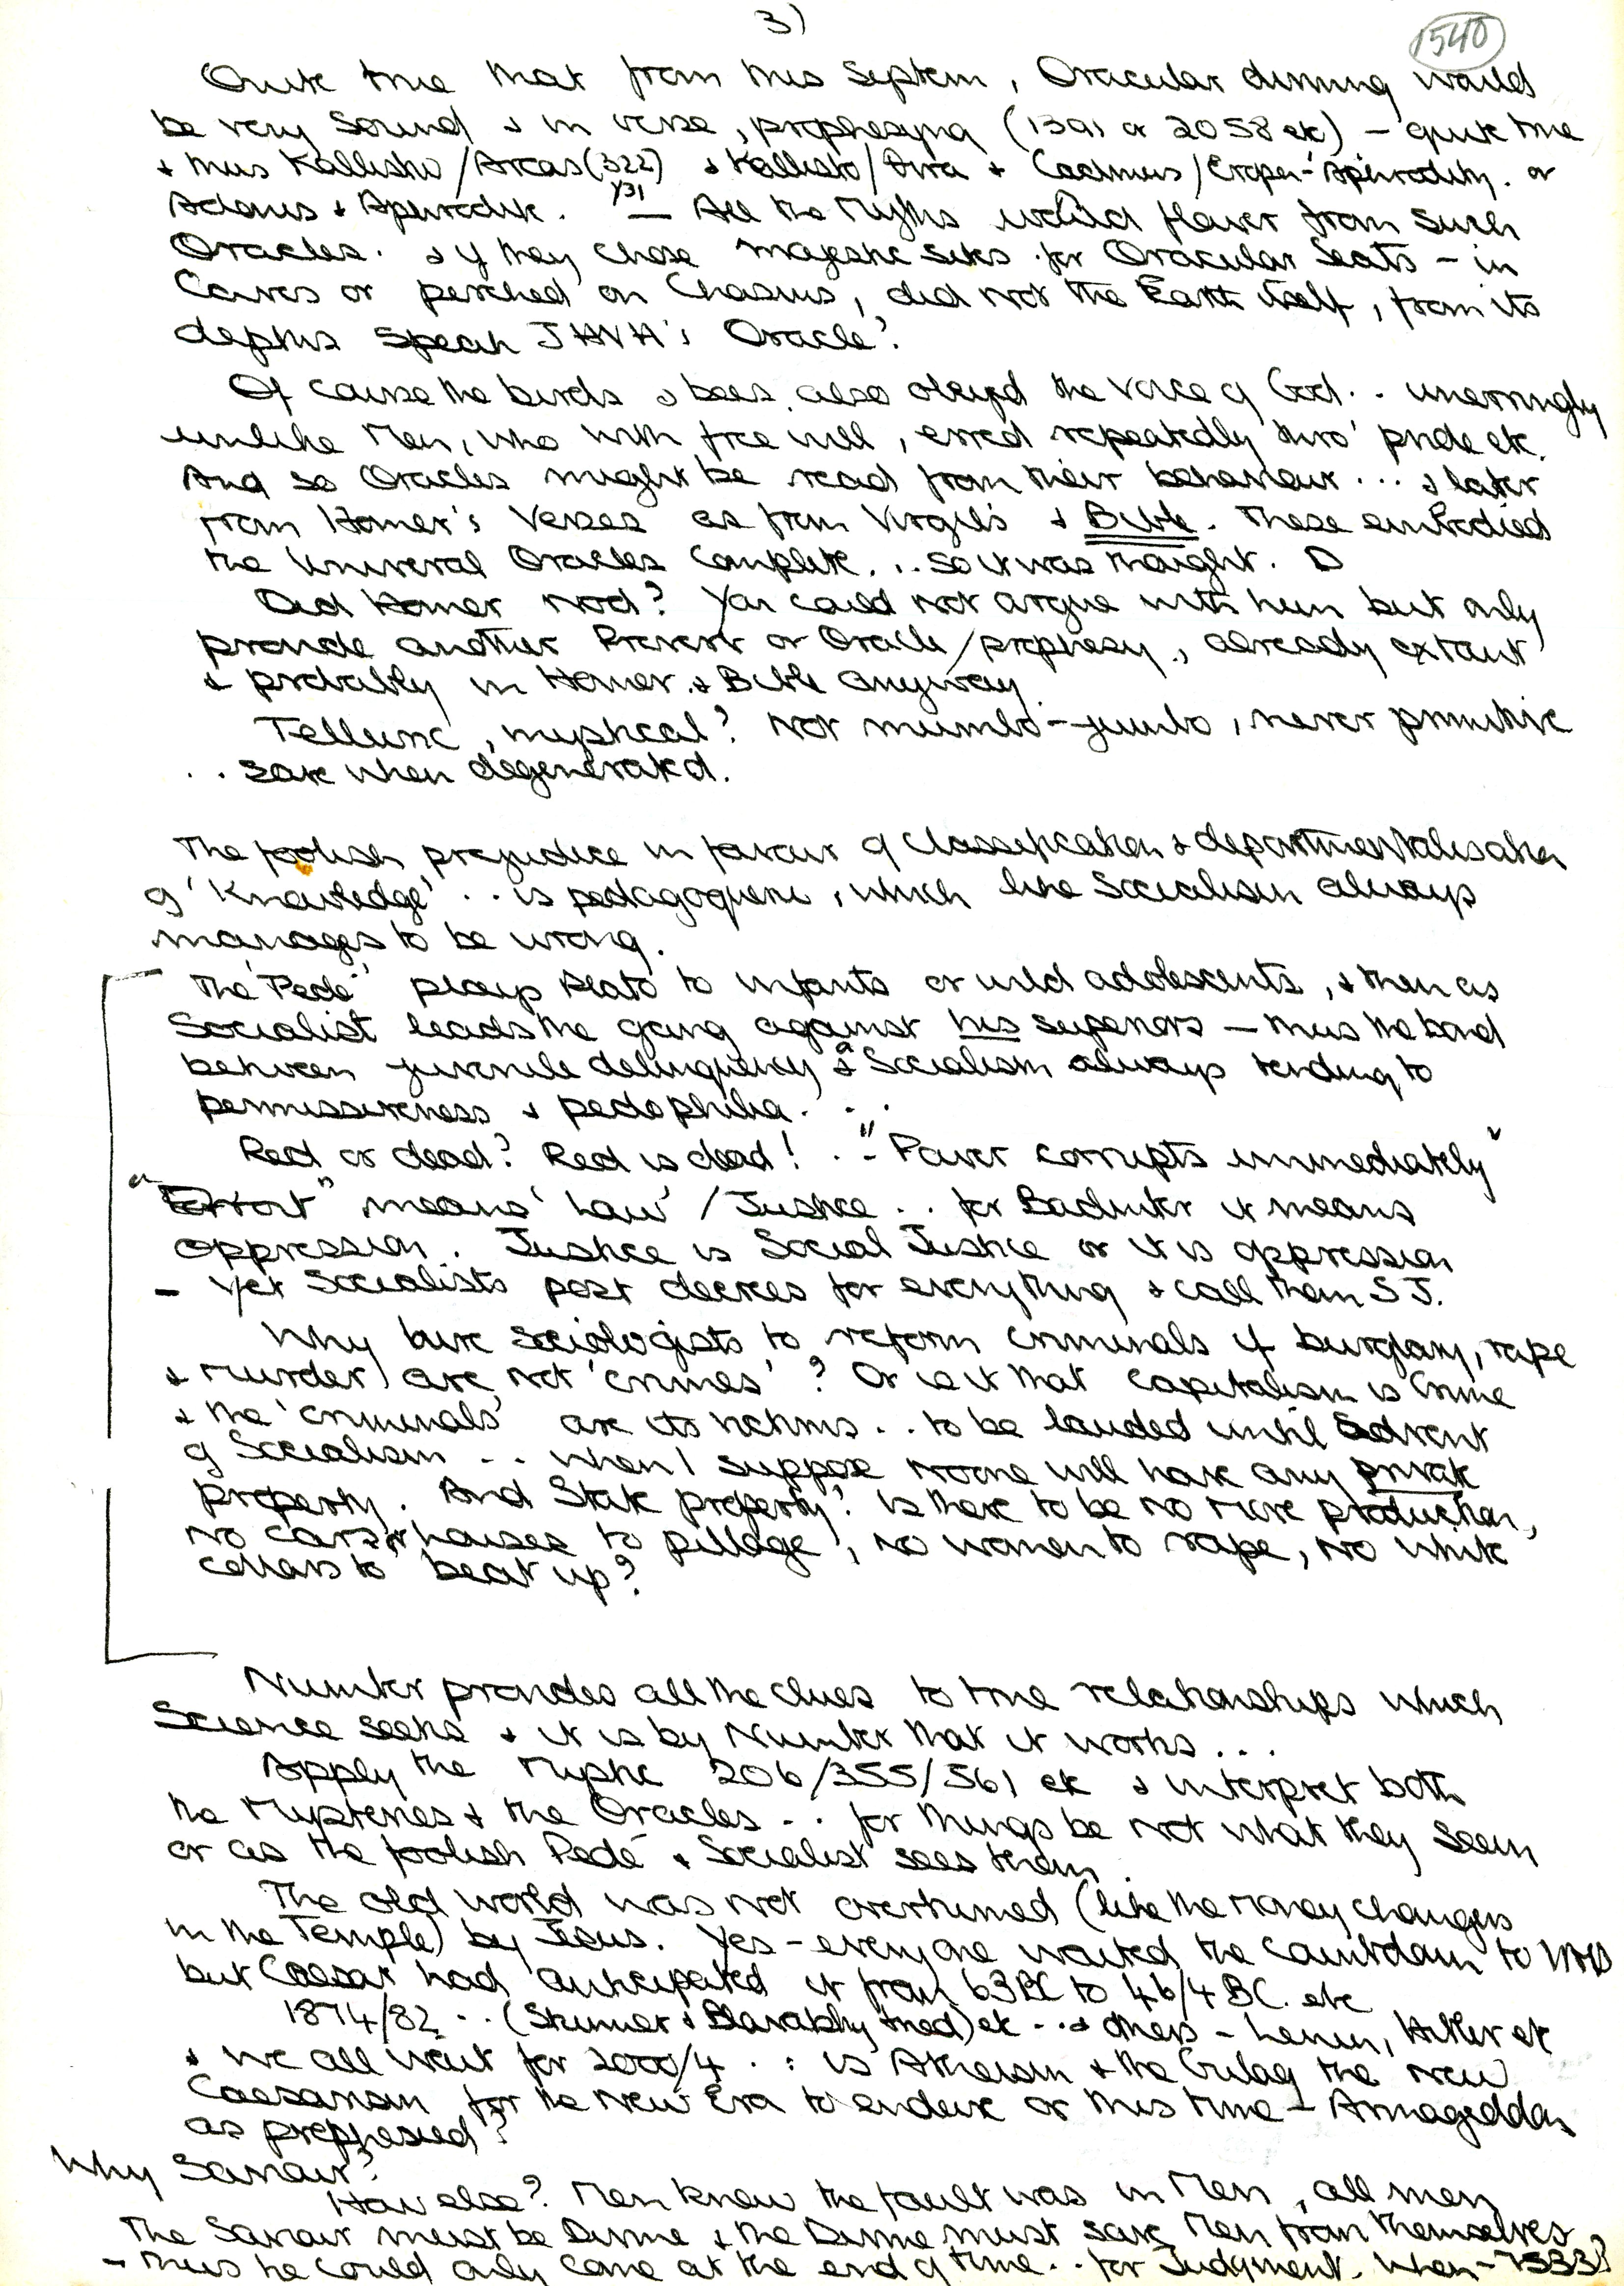 3)
1540
Quite true that from this System, Oracular dinning would
be very sound & in verse, prophesying (1391 or 2058 etc) — quite true
& thus Kallisto/Arcas (322) & Kallisto/ & Cadmus/Europe-Aphrodity. or
Adonis & Aphrodite. 431 — All the Myths would flower from such
Oracles. & if they chose majestic sites for Oracular Seats – in
Caves or perched on Chasms, did not the Earth itself, from its
depths speak JAVA's Oracle?
Of course the birds & bees also obeyed the voice of God.. unerringly
unlike Men, who with free will, erred repeatedly thro' pride etc.
And so Oracles might be read from their behaviour ... & later
from Homer's Verses as from Virgil's & Bible. These embodied
the Universal Oracles complete... so it was thought. D
Did Homer nod? You could not argue with him but only
provide another Proverb or Oracle/prophesy, already extant
& probably in Homer & Bible anyway.
Telluric, mystical? Not mumbo-jumbo, never primitive
.. save when degenerated.
The foolish prejudice in favour of Classification & departmentalisation
of 'Knowledge' .. is pedagoguery, which like Socialism always
manages to be wrong.
The 'Pede' plays Plato to infants or wild adolescents, & then as
Socialist leads the gang against his superiors — thus the bond
between juvenile delinquency & a Socialism always tending to
permissiveness & pedophilia. ...
Red or dead? Red is dead! .. "Power corrupts immediately"
"Droit" means 'Law' / Justice .. for Badinter it means
oppression. Justice is Social Justice or it is oppression
– yet Socialists post decrees for everything & call them S J.
Why hire sociologists to reform criminals if burglary, rape
& Murder) are not 'crimes'? Or is it that Capitalism is Crime
& the 'criminals' are its victims .. to be lauded until advent
of Socialism .. when I suppose noone will have any private
property. And State property? Is there to be no more production,
no cars or houses to pillage, no women to rape, no white
collars to beat up?
Number provides all the clues to true relationships which
Science seeks & it is by Number that it works ...
Apply the Mystic 206/355/561 etc & interpret both
the Mysteries & the Oracles .. for things be not what they seem
or as the foolish Pede & Socialist sees them.
The old world was not overturned (like the Money changers
in the Temple) by Jesus. Yes – everyone waited the Countdown to
but Caesar had anticipated it from 63 BC to 46/4 BC. etc
1874/82 .. (Skinner & Blavatsky tried) etc .. & others – Lenin, Hitler etc
& we all wait for 2000/4 .. : is Atheism & the Gulag the new
Caesarism for the New Era to endure or this time – Armageddon
as prophesied?
Why Saviour?
How else? Men knew the fault was in Men, all men
The Saviour must be Divine & the Divine must save Men from themselves
– thus he could only come at the end of time .. for Judgment. When –